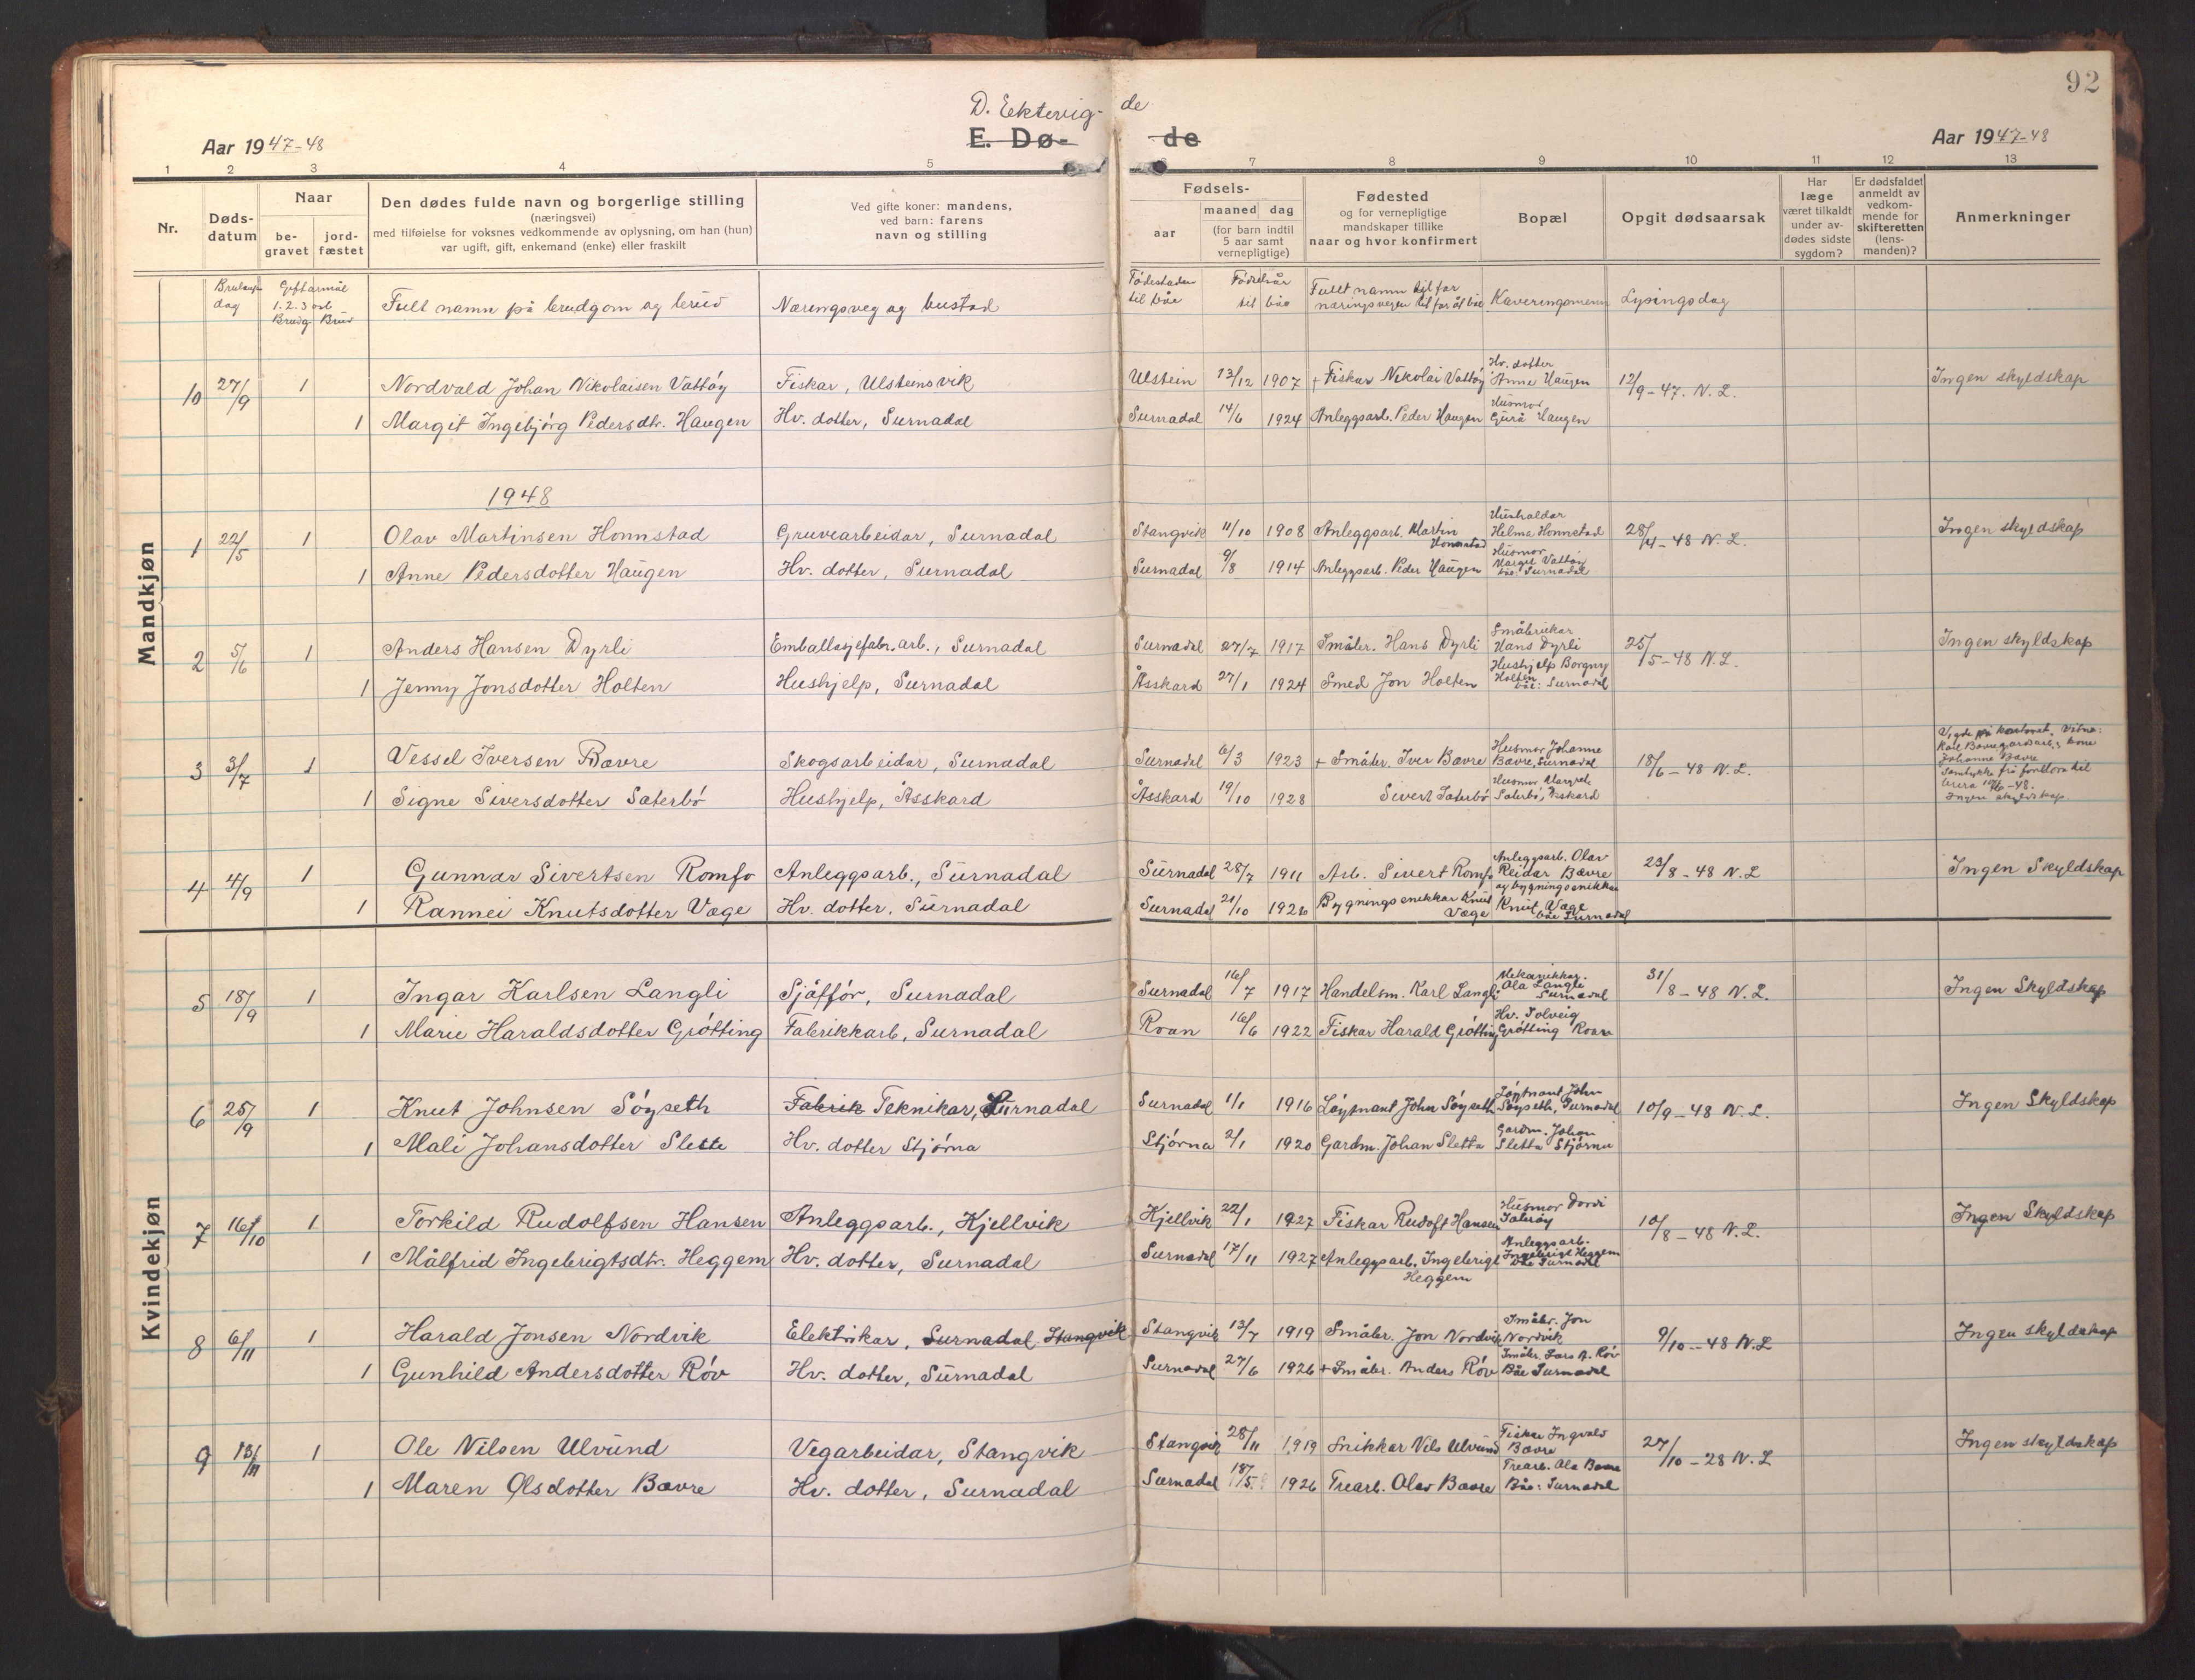 92
D. Ektevig- de
Aar 1947-48 E. Dø- de Aar 1947-48
1 2 3 4 5 7 8 9 10 11 12 13
Nr.
Døds-datum
Naar
be-gravet
jord-fæstet
Den dødes fulde navn og borgerlige stilling
(næringsvei)
med tilføielse for voksnes vedkommende av oplysning, om han (hun)
var ugift, gift, enkemand (enke) eller fraskilt
Ved gifte koner: mandens,
ved barn: farens
navn og stilling
Fødsels-
aar
maaned dag
(for barn indtil
5 aar samt
vernepligtige)
Fødested
og for vernepligtige
mandskaper tillike
naar og hvor konfirmert
Bopæl
Opgit dødsaarsak
Har
læge
været tilkaldt
under av-
dødes sidste
sygdom?
Er dødsfaldet
anmeldt av
vedkom-
mende for
skifteretten
(lens-
manden)?
Anmerkninger
Mandkjøn
Kvindekjøn
Brulaups dag
Giftarmål 1. 2. 3 osb Brudg. Brud
Fullt namn på brudgom og brud
Næringsveg og bustad
Fødestaden til båe
Fødselsår til båe
Fullt namn til far
næringsvegen til far åt båe
Kaveringsmenn
Lysingsdag
10 27/9 1 Nordvald Johan Nikolaisen Vattøy Fiskar, Ulsteinsvik Ulstein 13/12 1907 + Fiskar Nikolai Vattøy Hv. dotter Anne Haugen 12/9-47. N. L. Ingen skyldskap
1 Margit Ingebjørg Pedersdtr. Haugen Hv. dotter, Surnadal Surnadal 14/6 1924 Anleggsarb. Peder Haugen Husmor Gurå Haugen
1948
1 22/5 1 Olav Martinsen Honnstad Gruvearbeidar, Surnadal Stangvik 11/10 1908 Anleggsarb. Martin Honnstad Hushaldar Helma Honnstad 28/4-48 N. L. Ingen skyldskap
1 Anne Pedersdotter Haugen Hv. dotter, Surnadal Surnadal 9/8 1914 Anleggsarb. Peder Haugen Husmor Margit Vattøy båe: Surnadal
2 5/6 1 Anders Hansen Dyrli Emballasjefabr. arb., Surnadal Surnadal 27/7 1917 Småbr. Hans Dyrli Småbrukar Hans Dyrli 25/5-48 N. L. Ingen skyldskap
1 Jenny Jonsdotter Holten Hushjelp, Surnadal Åsskard 27/1 1924 Smed Jon Holten Hushjelp Borgny Holten båe: Surnadal
3 3/7 1 Vessel Iversen Bævre Skogsarbeidar, Surnadal Surnadal 6/3 1923 + Småbr. Iver Bævre Husmor Johanne Bævre, Surnadal 18/6-48 N. L. Vigde på kontoret. Vitne: Karl Bævre gardsarb., kone Johanne Bævre Samtykke frå foreldra til brura 18/6-48. Ingen skyldskap
1 Signe Siversdotter Sæterbø Hushjelp, Åsskard Åsskard 19/10 1928 Sivert Sæterbø Husmor Margrete Sæterbø, Åskard
4 4/9 1 Gunnar Sivertsen Romfo Anleggsarb., Surnadal Surnadal 28/7 1911 Arb. Sivert Romfo Anleggsarb. Olav Reidar Bævre 23/8-48 N. L Ingen Skyldskap
1 Rannei Knutsdotter Væge Hv. dotter, Surnadal Surnadal 21/10 1926 Bygningssnikkar Knut Væge og bygningssnikkar Knut Væge båe Surnadal
5 18/9 1 Ingar Karlsen Langli Sjåffør, Surnadal Surnadal 16/7 1917 Handelsm. Karl Langli Mekanikkar. Ola Langli Surnadal 31/8-48 N. L. Ingen Skyldskap
1 Marie Haraldsdotter Grøtting Fabrikkarb, Surnadal Roan 16/6 1922 Fiskar Harald Grøtting Hv. Solveig Grøtting Roan
6 25/9 1 Knut Johnsen Søyseth Fabrik Teknikar, Surnadal Surnadal 1/1 1916 Løytnant John Søyseth Løytnant John Søyseth, Surnadal 10/9-48 N. L. Ingen Skyldskap
1 Mali Johansdotter Slette Hv. dotter Stjørna Stjørna 2/1 1920 Gardm. Johan Sletta Gardm. Johan Sletta Stjørna
7 16/10 1 Torkild Rudolfsen Hansen Anleggsarb., Kjellvik Kjellvik 22/1 1927 Fiskar Rudolf Hansen Husmor Dordi 10/8-48 N. L. Ingen Skyldskap
1 Målfrid Ingebrigtsdtr. Heggem Hv. dotter, Surnadal Surnadal 17/11 1927 Anleggsarb. Ingebrigt Heggem Anleggsarb. Ingebrigt Heggem båe Surnadal
8 6/11 1 Harald Jonsen Nordvik Elektrikar, Surnadal Stangvik Stangvik 13/7 1919 Småbr. Jon Nordvik Småbr. Jon Nordvik 9/10-48 N. L Ingen skyldskap
1 Gunhild Andersdotter Røv Hv. dotter, Surnadal Surnadal 27/6 1926 + Småbr. Anders Røv Småbr. Lars A. Røv Båe Surnadal
9 13/11 1 Ole Nilsen Ulvund Vegarbeidar, Stangvik Stangvik 28/11 1919 Snikkar Nils Ulvund Fiskar Ingvald Bævre 27/10-28 N. L Ingen skyldskap
1 Maren Olsdotter Bævre Hv. dotter, Surnadal Surnadal 18/5 1926 Trearb. Olav Bævre Trearb. Ola Bævre Båe: Surnadal